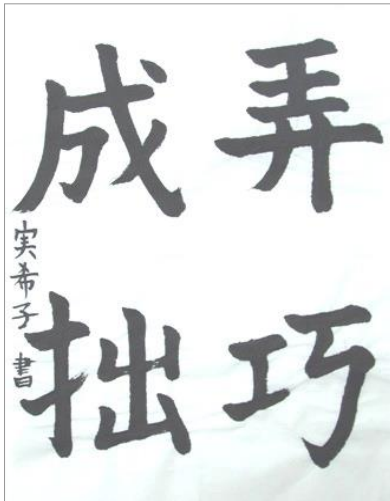 弄巧
成拙
実希子 書